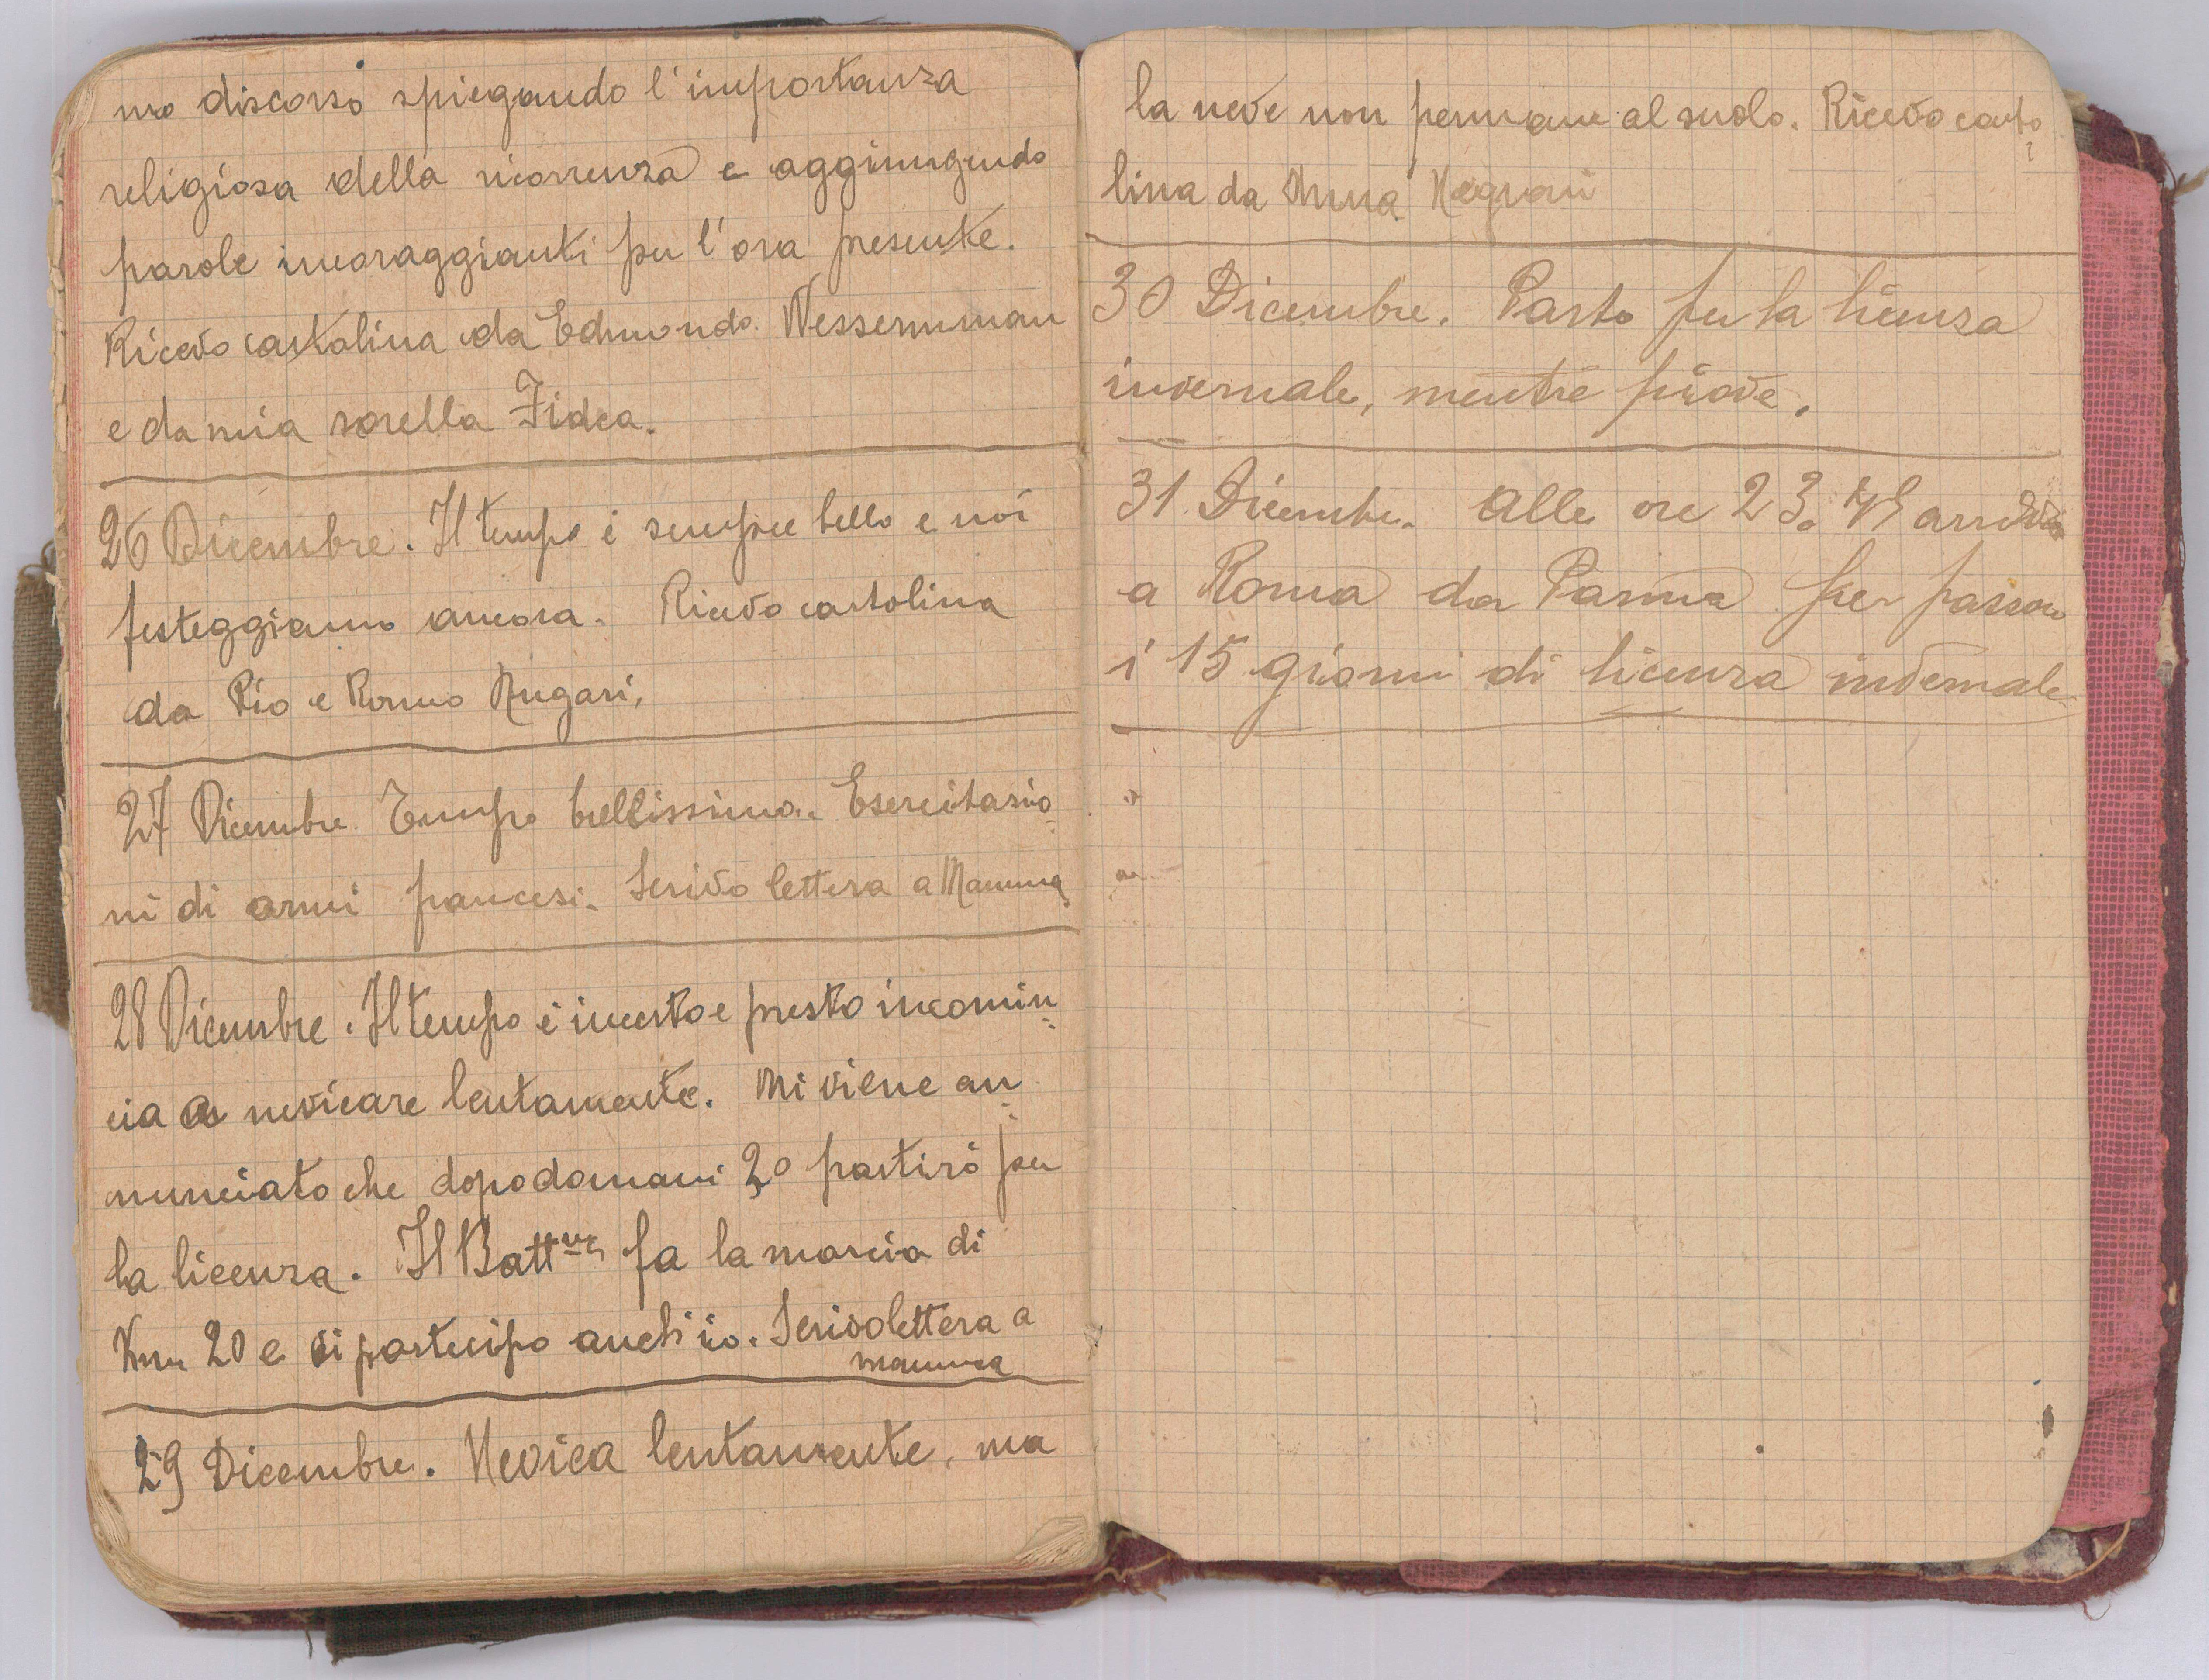 no discorso spiegando l'importanza
religiosa della ricorrenza e aggiungendo
parole incoraggianti per l'ora presente.
Ricevo cartolina da Edmondo Wessermman
e da mia sorella Fidea.
26 Dicembre. Il tempo è sempre bello e noi
festeggiamo ancora. Ricevo cartolina
da Pio e Romno Rugari.
27 Dicembre Tempo bellissimo. Esercitazio
ni di armi francesi. Scrivo lettera a Mamma
28 Dicembre. Il tempo è incerto e presto incomin
cia a nevicare lentamente. Mi viene an
nunciato che dopodomani 30 partirò per
la licenza. Il Battne fa la marcia di
Km 20 e ci partecipo anch'io. Scrivo lettera a
mamma
29 Dicembre. Nevica lentamente, ma
la neve non permane al suolo. Ricevo carto
lina da Anna
30 Dicembre. Parto per la licenza
invernale, mentre piove.
31 Dicembre. Alle ore 23. arrivo
a Roma da Parma per passare
i 15 giorni di licenza invernale